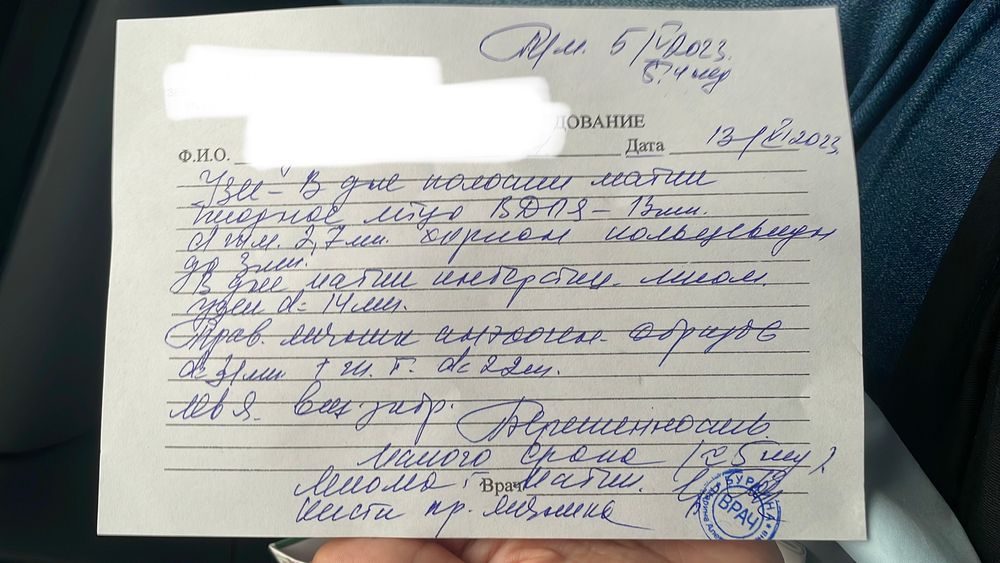 П/м. 5/V 2023.
5.4 нед
ДОВАНИЕ
Ф.И.О. Дата 13/VI 2023.
УЗИ - В дне полости матки
плодное яйцо ВДПЯ - 13мм.
d ж.м. 2,7мм. хорион кольцевидн
до 3мм.
В дне матки интерстиц. миом.
узел d = 14мм.
Прав. яичник анэхоген. образов
d = 31мм + ж. т. d = 22мм.
лев я. без
Беременность
малого срока (≈ 5 нед).
Врач
Миома матки.
Киста пр. яичника
БУР
ВРАЧ